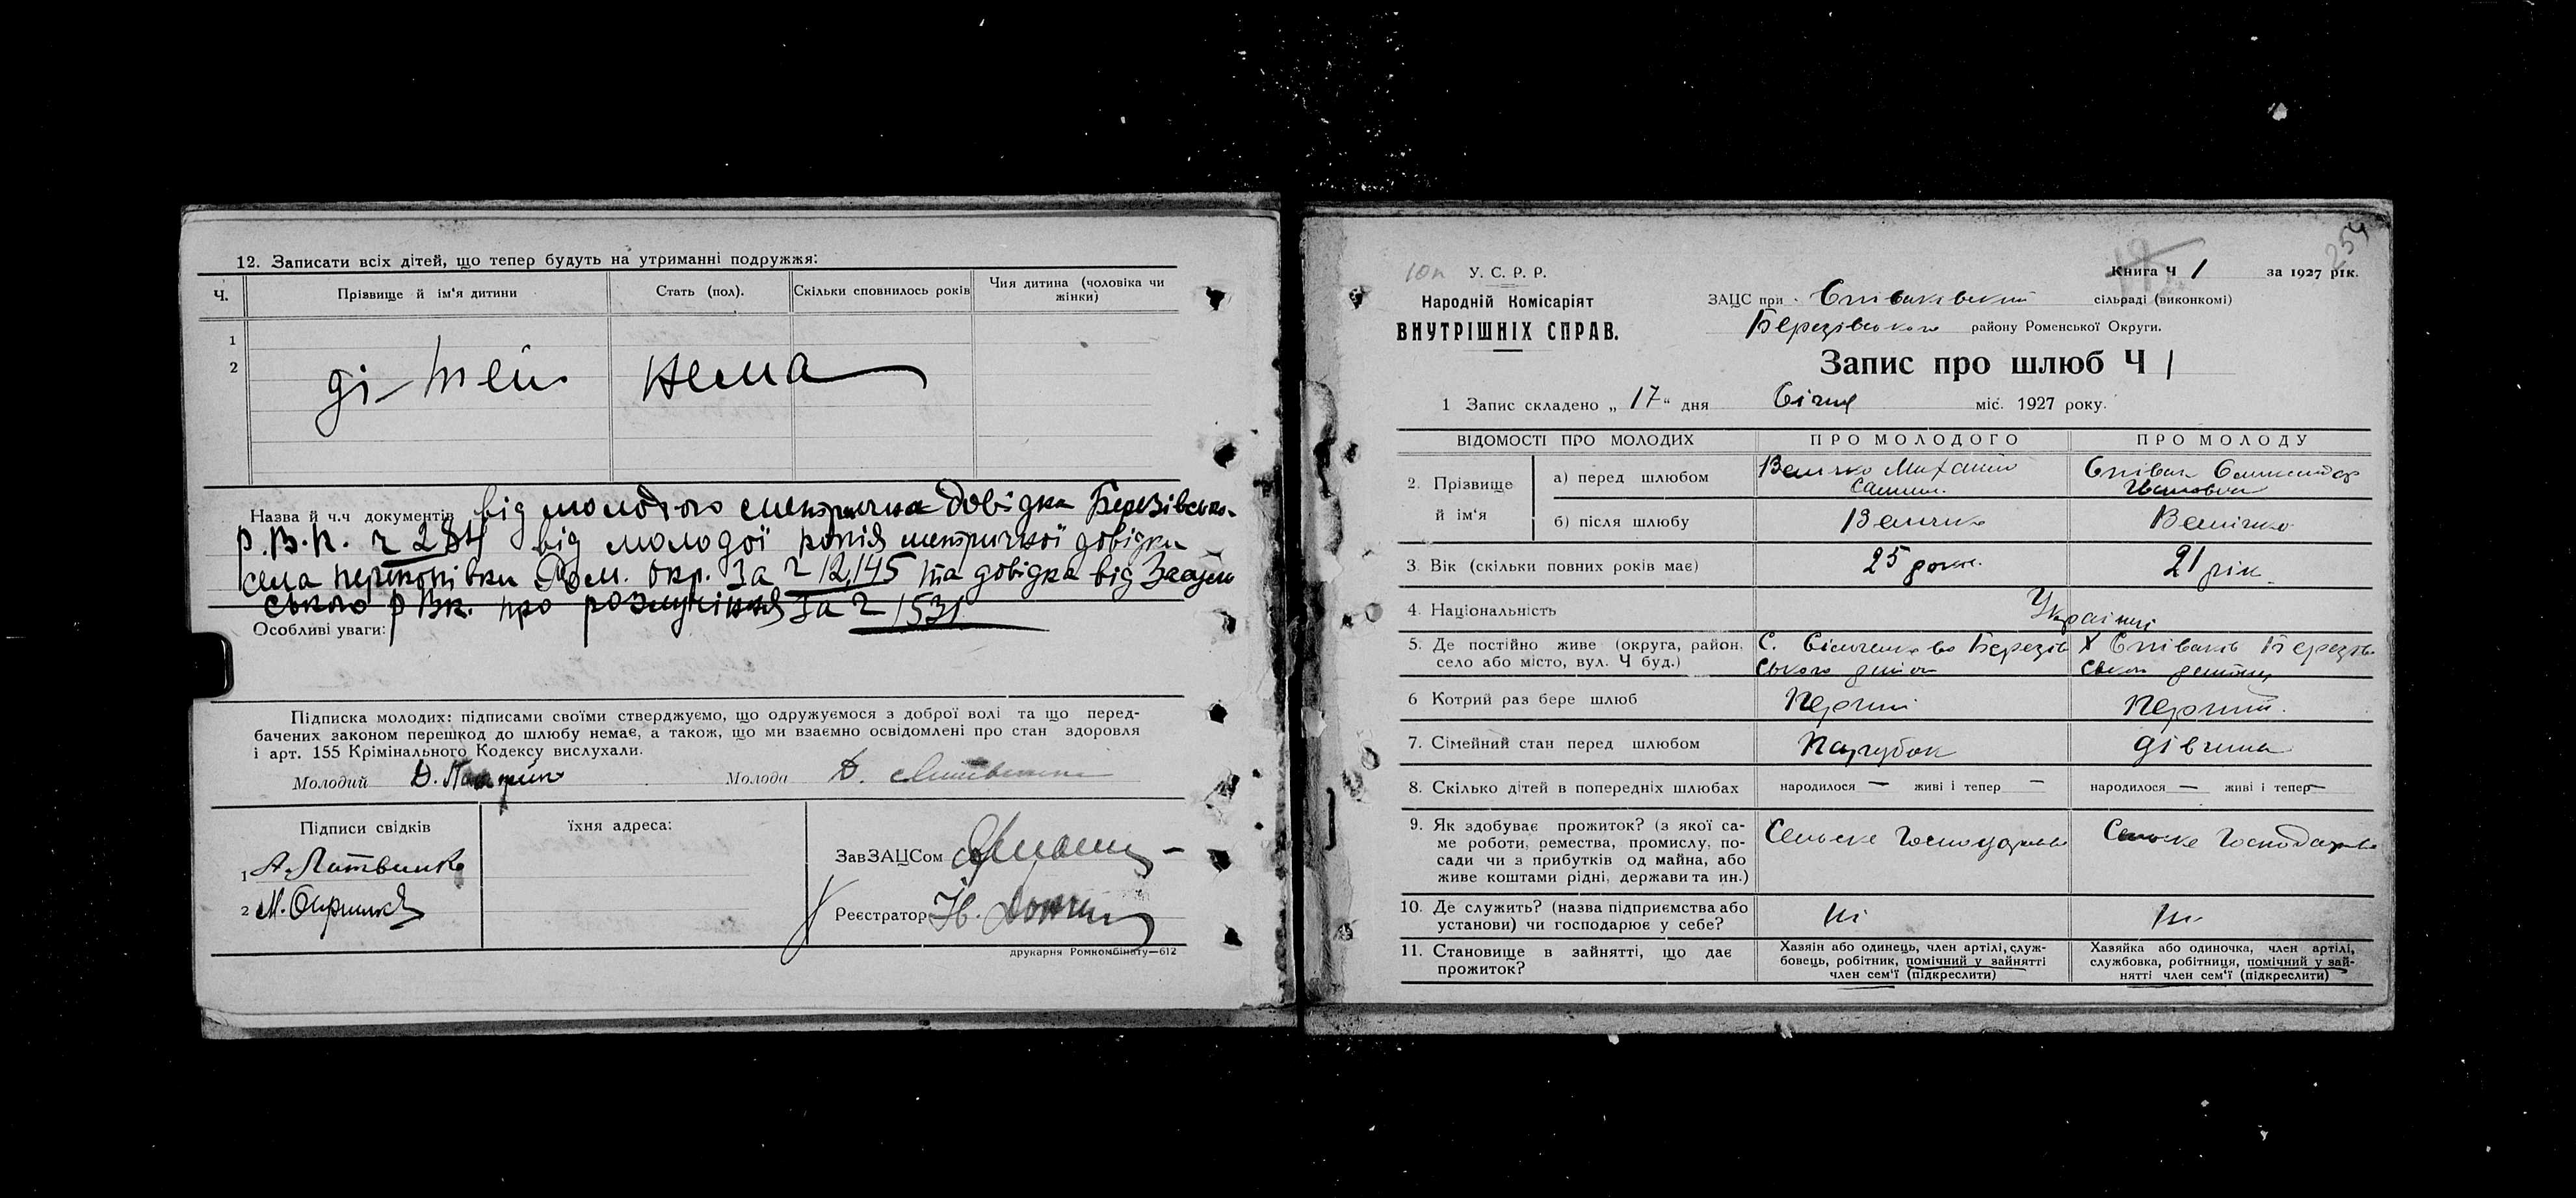 12. Записати всіх дітей, що тепер будуть на утриманні подружжя:
Ч. Прізвище й ім'я дитини Стать (пол). Скільки сповнилось років Чия дитина (чоловіка чи жінки)
1
2 дітей нема
Назва й ч.ч документів від молодого метрична довідка Березівсько-
Р.В.К. ч 284 від молодої копія метричної довідки
села Перекопівки Ром. окр. За ч 12,145 та довідка від
ського РВК. про розлучіння за ч 1531.
Особливі уваги:
Підписка молодих: підписами своїми стверджуємо, що одружуємося з доброї волі та що перед-
бачених законом перешкод до шлюбу немає, а також, що ми взаємно освідомлені про стан здоровля
і арт. 155 Крімінального Кодексу вислухали.
Молодий Д. Молода Д.
Підписи свідків їхня адреса:
1 А. Литвинко
2 М.
ЗавЗАЦСом
Реєстратор
друкарня Ромкомбінату—612
254
10п У. С. Р. Р.
Книга Ч 1 за 1927 рік.
Народній Комісаріят
ВНУТРІШНІХ СПРАВ.
ЗАЦС при Співаківській сільраді (виконкомі)
Березівського району Роменської Округи.
Запис про шлюб Ч 1
1 Запис складено „17“ дня Січня міс. 1927 року.
ВІДОМОСТІ ПРО МОЛОДИХ ПРО МОЛОДОГО ПРО МОЛОДУ
2. Прізвище й ім'я
а) перед шлюбом Величко Михайло Співак
б) після шлюбу Величко Величко
3. Вік (скільки повних років має) 25 рок. 21 рік
4. Національність Українці
5. Де постійно живе (округа, район, село або місто, вул. Ч буд.) С. Березівського району Х Співаків Березів
6 Котрий раз бере шлюб Перший Перший.
7. Сімейний стан перед шлюбом Парубок дівчина
8. Скілько дітей в попередніх шлюбах народилося — живі і тепер — народилося — живі і тепер —
9. Як здобуває прожиток? (з якої са-
ме роботи, ремества, промислу, по-
сади чи з прибутків од майна, або
живе коштами рідні, держави та ин.)
Сельске Господарство Сельске Господарство
10. Де служить? (назва підприємства або
установи) чи господарює у себе?
Ні Ні
11. Становище в зайнятті, що дає
прожиток?
Хазяін або одинець, член артілі, служ-
бовець, робітник, помічний у зайнятті
член сем'ї (підкреслити)
Хазяйка або одиночка, член артілі,
службовка, робітниця, помічний у зай-
нятті член сем'ї (підкреслити)